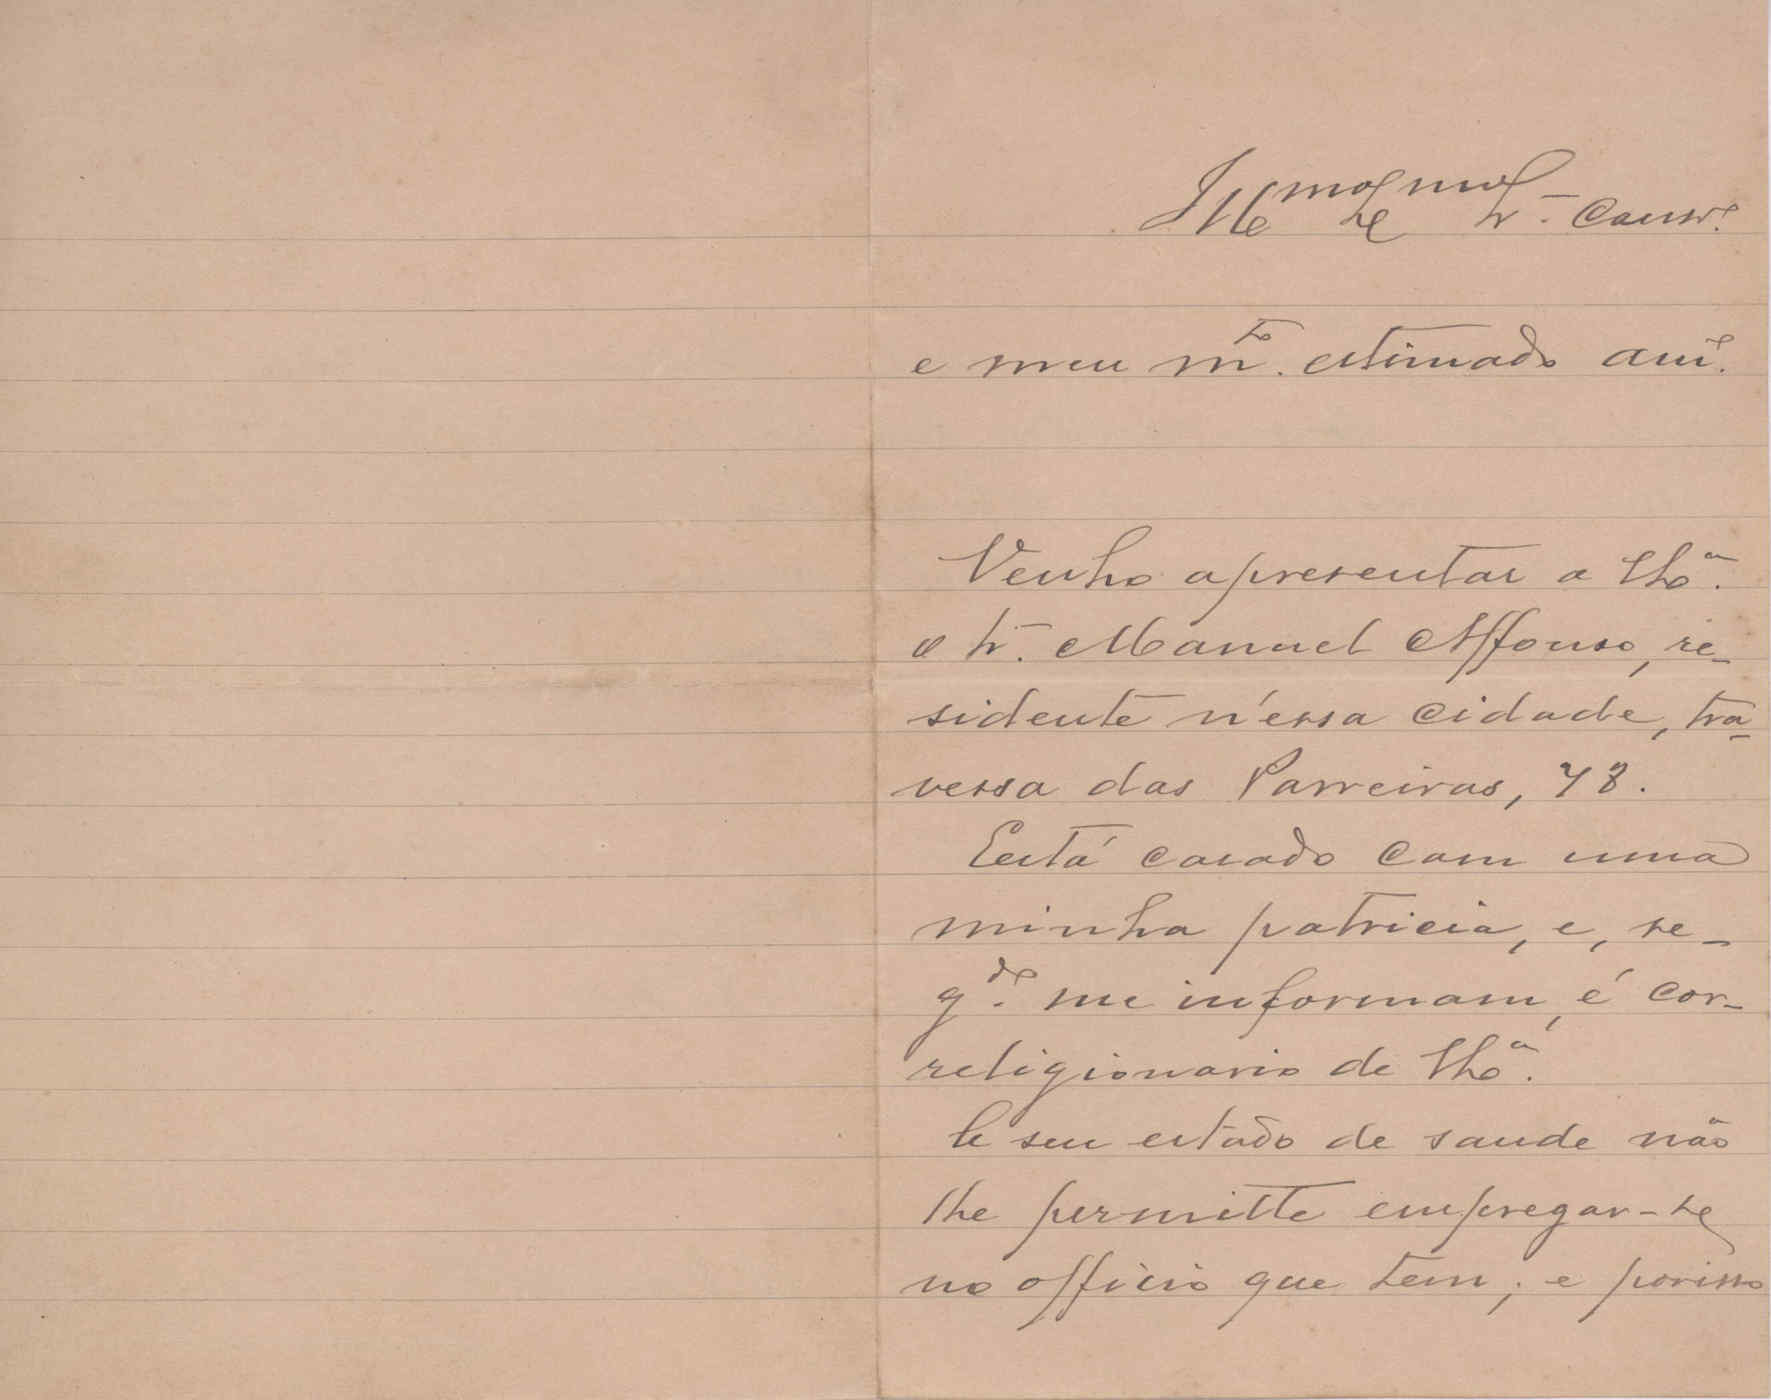 Ill.mo e Ex.mo Sr. Cons.o
e meu m.to estimado am.o
Venho apresentar a V. Ex.a
o Sr. Manuel Affonso, re-
sidente n'essa cidade, tra-
vessa das Parreiras, 48.
Está casado com uma
minha patricia, e, se-
g.do me informam, é cor-
religionario de V. Ex.a
O seu estado de saude não
lhe permitte empregar-se
no officio que tem; e porisso